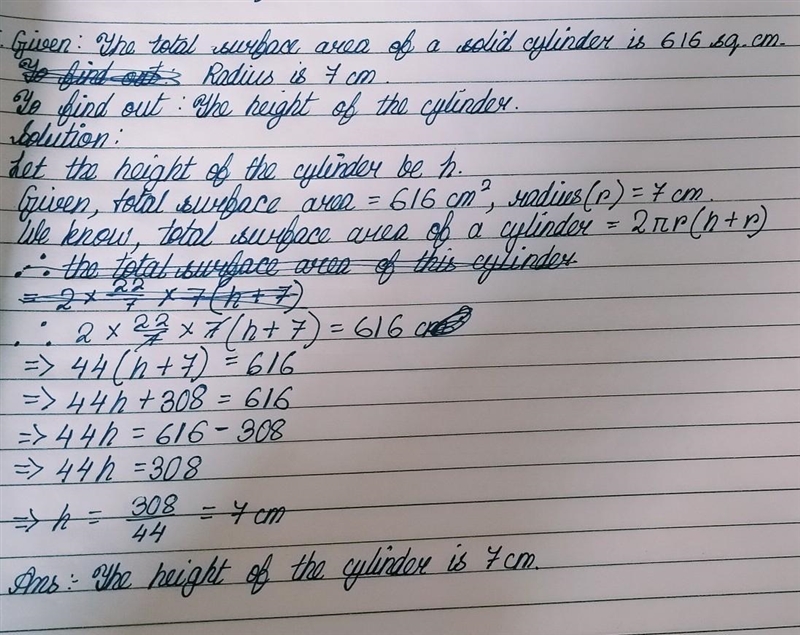 Given: The total surface area of a solid cylinder is 616 sq. cm.
To find out: Radius is 7 cm.
To find out: The height of the cylinder.
Solution:
Let the height of the cylinder be h.
Given, total surface area = 616 cm², radius (r) = 7 cm.
We know, total surface area of a cylinder = 2πr(h+r)
∴ the total surface area of this cylinder
= 2 × 22/7 × 7(h+7)
∴ 2 × 22/7 × 7(h+7) = 616
=> 44(h+7) = 616
=> 44h + 308 = 616
=> 44h = 616 - 308
=> 44h = 308
=> h = 308/44 = 7 cm
Ans:- The height of the cylinder is 7 cm.